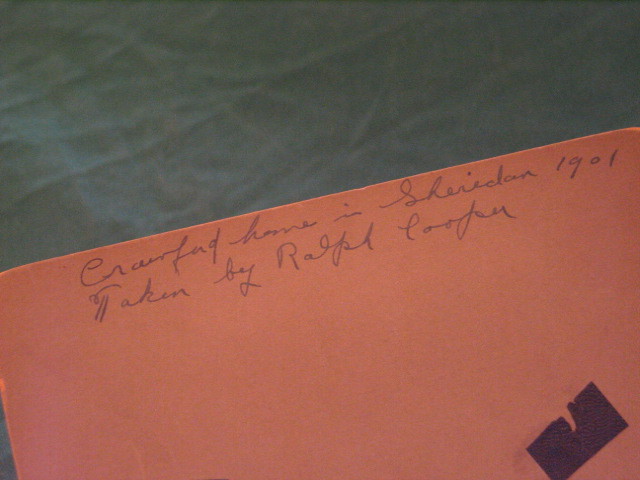 Crawford home in Sheridan 1901
Taken by Ralph Cooper